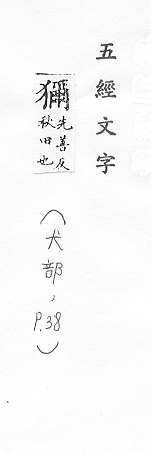 五經文字
獮
先善反
秋田也
(犬部, P.38)